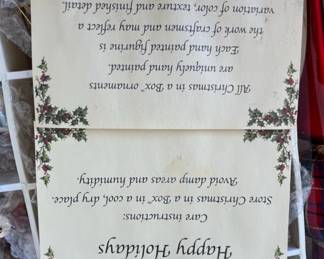 Happy Holidays
Care instructions:
Store Christmas in a Box™ in cool, dry place.
Avoid damp areas and humidity.
All Christmas in a Box™ ornaments
are uniquely hand painted.
Each hand painted figurine is
the work of craftsmen and may reflect a
variation of color, texture and finished detail.